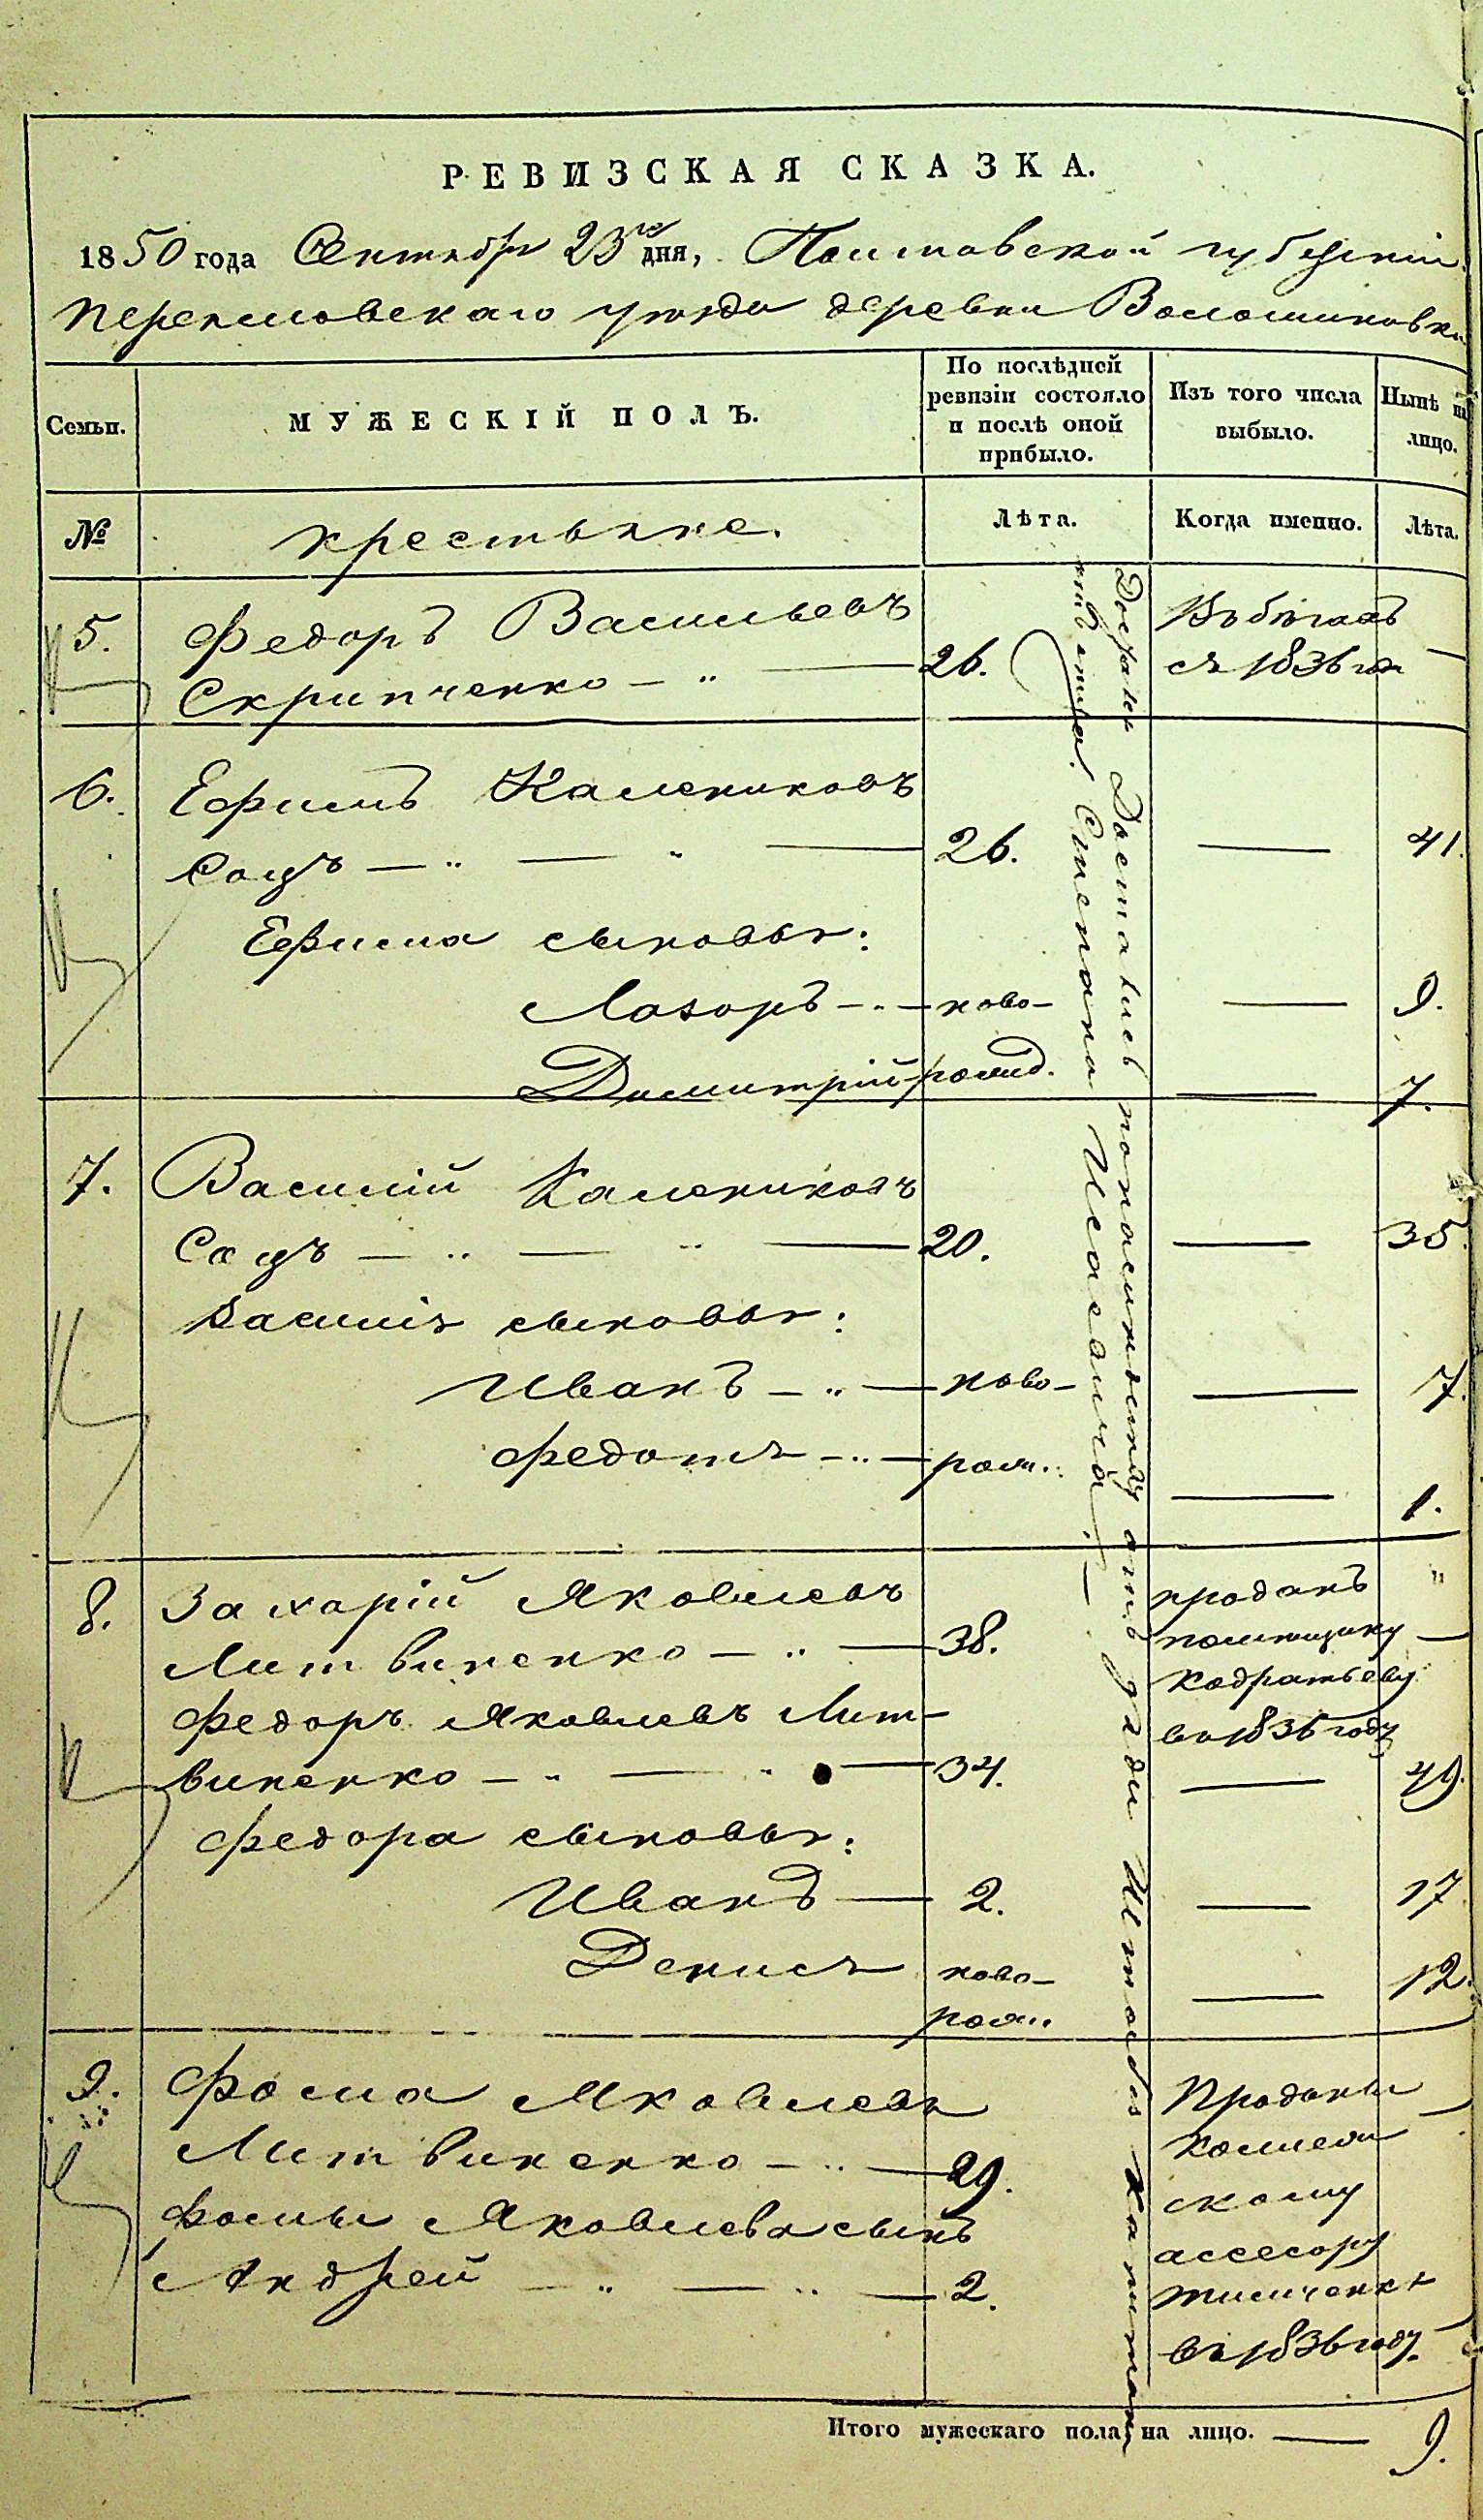 РЕВИЗСКАЯ СКАЗКА.
1850 года Сентября 23го дня, Полтавской губерніи
Переяславскаго уѣзда деревни Волошиновки
Семьи.
МУЖЕСКІЙ ПОЛЪ.
По послѣдней ревизіи состояло и послѣ оной прибыло.
Изъ того числа выбыло.
Нынѣ на лицо.
№
крестьяне.
Лѣта.
Когда именно.
Лѣта.
5. Федоръ Васильевъ Въ бѣгахъ
Скрипченко — „ — 26. съ 1836 года —
6. Ефимъ Калениковъ
Соцъ — „ — „ — 26. — 41.
Ефима сыновья:
Лазоръ — „ — ново- — 9.
Димитрій — рожд. — 7.
7. Василій Калениковъ
Соцъ — „ — „ — 20. — 35.
Василія сыновья:
Иванъ — „ — ново- — 7.
Федотъ — „ — рож. — 1.
8. Захарій Яковлевъ проданъ „
Литвиненко — „ — 38. помѣщику —
Кодратьеву
Федоръ Яковлевъ Лит- въ 1836 году
виненко — „ — „ — 34. — 49.
Федора сыновья:
Иванъ — 2. — 17
Денисъ ново- — 12.
рож.
9. Фома Яковлевъ Проданы —
Литвиненко — „ — 29. колежскому
Фомы Яковлева сынъ ассесору
Андрей — „ — „ — 2.
въ 1836 году. —
Достались по наслѣдству отъ дяди Штабсъ Капитана
Степана Исаевича. —
Итого мужескаго пола на лицо. — 9.